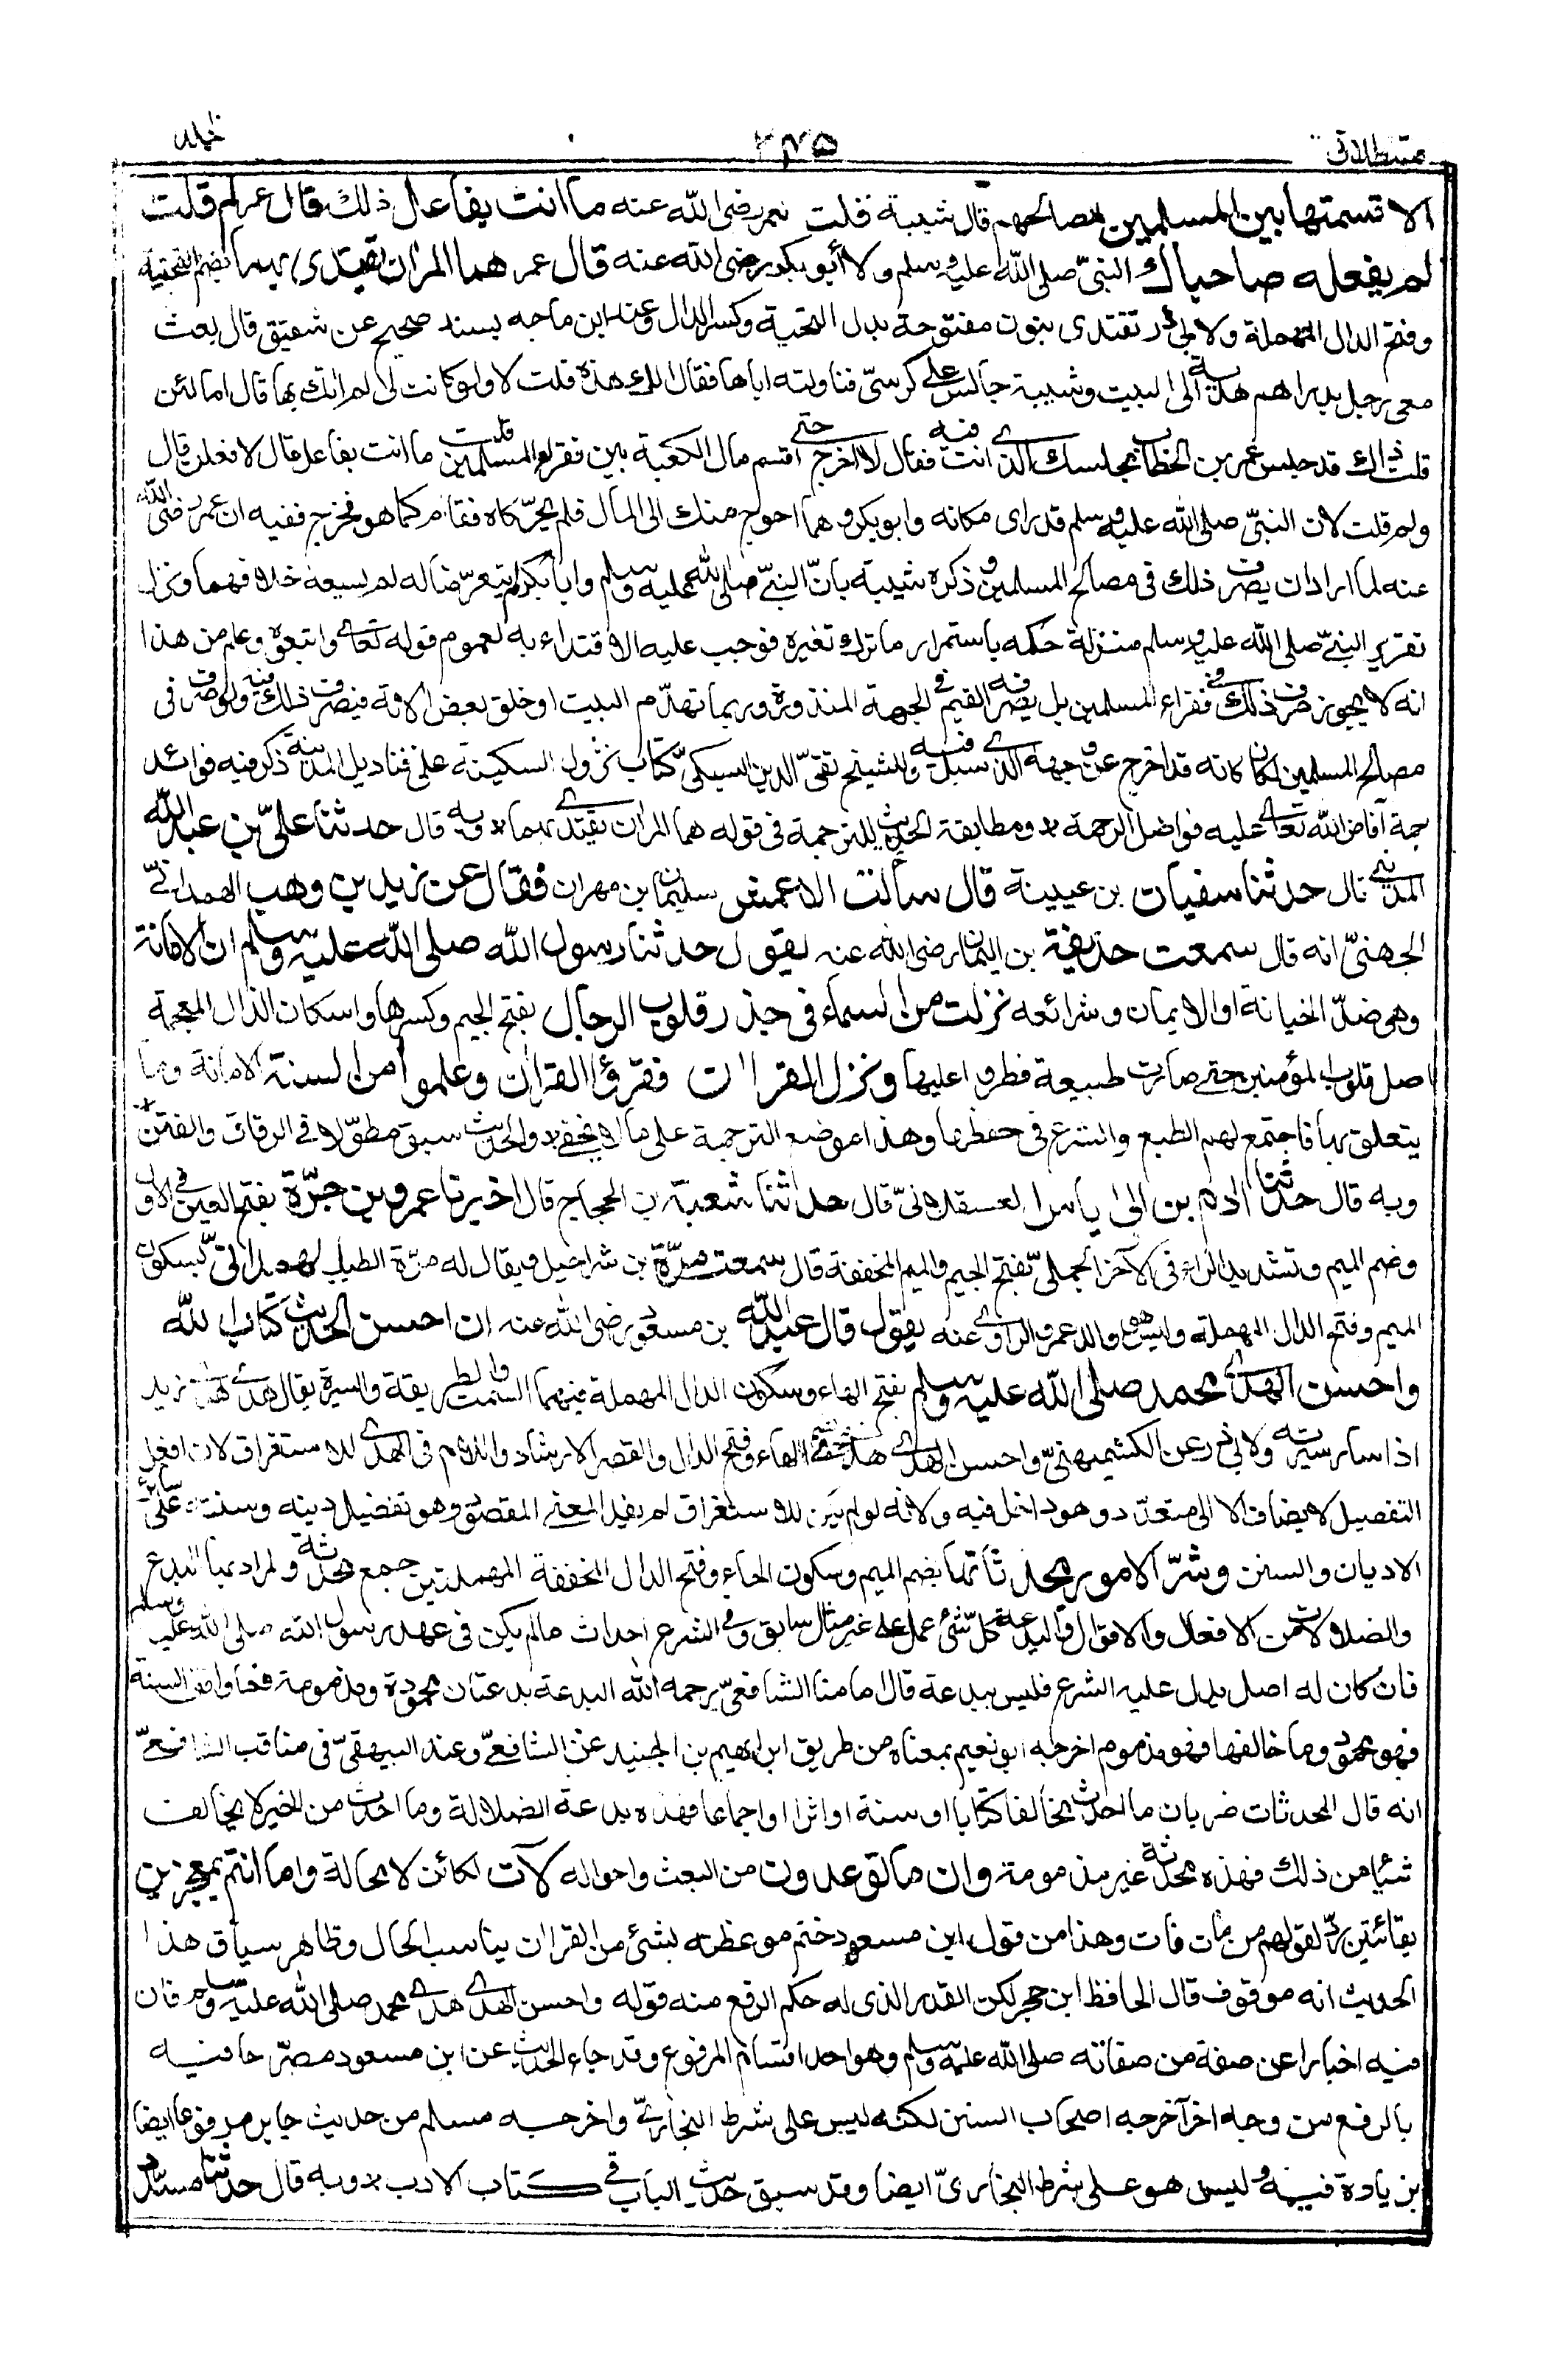 قسطلانی ٢٧٥ جلد
الا قسمتها بين المسلمين لمصالحهم قال شيبة فقلت لعمر رضى الله عنه ما انت بفاعل ذلك قال عمر لم قلت
لم يفعله صاحباك النبىّ صلى الله عليه وسلم ولا أبو بكر رضى الله عنه قال عمر هما المرأن يقتدى بهما بضم التحتية
وفتح الدال المهملة ولابى ذر نقتدى بنون مفتوحة بدل التحتية وكسر الدال وعند ابن ماجه بسند صحيح عن شقيق قال بعث
معى رجل بدراهم هدية الى البيت وشيبة جالس على كرسىّ فناولته اياها فقال الك هذه قلت لا ولو كانت لى لم اتك بها قال اما لئن
قلت ذاك قد جلس عمر بن الخطاب مجلسك الذى انت فيه فقال لا اخرج حتى اقسم مال الكعبة بين فقراء المسلمين قلت ما انت بفاعل قال لافعلن قال
ولم قلت لان النبىّ صلى الله عليه وسلم قد راى مكانه وابو بكر وهما احوج منك الى المال فلم يحرّكاه فقام كما هو فخرج ففيه ان عمر رضى الله
عنه لما اراد ان يصرف ذلك فى مصالح المسلمين وذكره شيبة بانّ النبىّ صلى الله عليه وسلم وابا بكر لم يتعرّضا له لم يسعه خلافهما ونزل
تقرير النبىّ صلى الله عليه وسلم منزلة حكمه باستمرار ما ترك تغيره فوجب عليه الاقتداء به لعموم قوله تعالى واتبعوه وعلم من هذا
انه لا يجوز صرف ذلك فى فقراء المسلمين بل يصرفه القيم فى الجهة المنذورة وربما تهدّم البيت او خلق بعض الاته فيصرف ذلك فيه ولو صرف فى
مصالح المسلمين لكان كانه قد اخرج عن وجهه الذى سبل فيه وللشيخ تقىّ الدين السبكىّ كتاب نزول السكينة على قناديل المدينة ذكر فيه فوائد
جمة افاض الله تعالى عليه فواضل الرحمة * ومطابقة الحديث للترجمة فى قوله هما المرأن يقتدى بهما * وبه قال حدثنا علىّ بن عبد الله
المدينى قال حدثنا سفيان بن عيينة قال سألت الاعمش سليمان بن مهران فقال عن زيد بن وهب الهمدانىّ
الجهنىّ انه قال سمعت حذيفة بن اليمان رضى الله عنه يقول حدثنا رسول الله صلى الله عليه وسلم ان الامانة
وهى ضدّ الخيانة او الايمان وشرائعه نزلت من السماء فى جذر قلوب الرجال بفتح الجيم وكسرها واسكان الذال المعجمة
اصل قلوب المؤمنين حتى صارت طبيعة فطروا عليها ونزل القرأن فقرؤا القرأن وعلموا من السنة الامانة وما
يتعلق بها فاجتمع لهم الطبع والشرع فى حفظها وهذا موضع الترجمة على ما لا يخفى * والحديث سبق مطوّلا فى الرقاق والفتن *
وبه قال حدثنا ادم بن ابى اياس العسقلانىّ قال حدثنا شعبة بن الحجاج قال اخبرنا عمرو بن مرّة بفتح العين فى الاول
وضم الميم وتشديد الراء فى الآخر الجملىّ بفتح الجيم والميم المخففة قال سمعت مرّة بن شراحيل ويقال له مرّة الطيب الهمدانىّ بسكون
الميم وفتح الدال المهملة وليس هو والد عمرو الراوى عنه يقول قال عبد الله بن مسعود رضى الله عنه ان احسن الحديث كتاب الله
واحسن الهدى هدى محمد صلى الله عليه وسلم بفتح الهاء وسكون الدال المهملة فيهما السمت والطريقة والسيرة يقال هدى هدى زيد
اذا سار سيرته ولابى ذر عن الكشميهنىّ واحسن الهدى هدى بضم الهاء وفتح الدال والقصر الارشاد واللام فى الهدى للاستغراق لان افعل
التفصيل لا يضاف الا الى متعدّد وهو داخل فيه ولانه لو لم يكن للاستغراق لم يفد المعنى المقصود وهو تفضيل دينه وسنته على سائر
الاديان والسنن وشرّ الامور محدثاتها بضم الميم وسكون الحاء وفتح الدال المخففة المهملتين جمع محدثة والمراد بها البدع
والضلالات من الافعال والاقوال والبدعة كلّ شئ عمل على غير مثال سابق وفى الشرع احداث ما لم يكن فى عهد رسول الله صلى الله عليه وسلم
فان كان له اصل يدل عليه الشرع فليس ببدعة قال امامنا الشافعىّ رحمه الله البدعة بدعتان محمودة ومذمومة فما وافق السنة
فهو محمود وما خالفها فهو مذموم اخرجه ابو نعيم بمعناه من طريق ابراهيم بن الجنيد عن الشافعىّ وعند البيهقىّ فى مناقب الشافعىّ
انه قال المحدثات ضربان ما احدث مخالفا كتابا او سنة او اثرا او اجماعا فهذه بدعة الضلالة وما احدث من الخير لا يخالف
شيأ من ذلك فهذه محدثة غير مذمومة وان ما توعدون من البعث واحواله لآت لكائن لا محالة وما انتم بمعجزين
بفائتين ردّ لقولهم من مات فات وهذا من قول ابن مسعود ختم موعظته بشئ من القران يناسب الحال وظاهر سياق هذا
الحديث انه موقوف قال الحافظ ابن حجر لكن القدر الذى له حكم الرفع منه قوله واحسن الهدى هدى محمد صلى الله عليه وسلم فان
فيه اخبارا عن صفة من صفاته صلى الله عليه وسلم وهو احد اقسام المرفوع وقد جاء الحديث عن ابن مسعود مصرّحا فيه
بالرفع من وجه اخر اخرجه اصحاب السنن لكنه ليس على شرط البخارىّ واخرجه مسلم من حديث جابر مرفوعا ايضا
بزيادة فيه وليس هو على شرط البخارىّ ايضا وقد سبق حديث الباب فى كتاب الادب * وبه قال حدثنا مسدّد